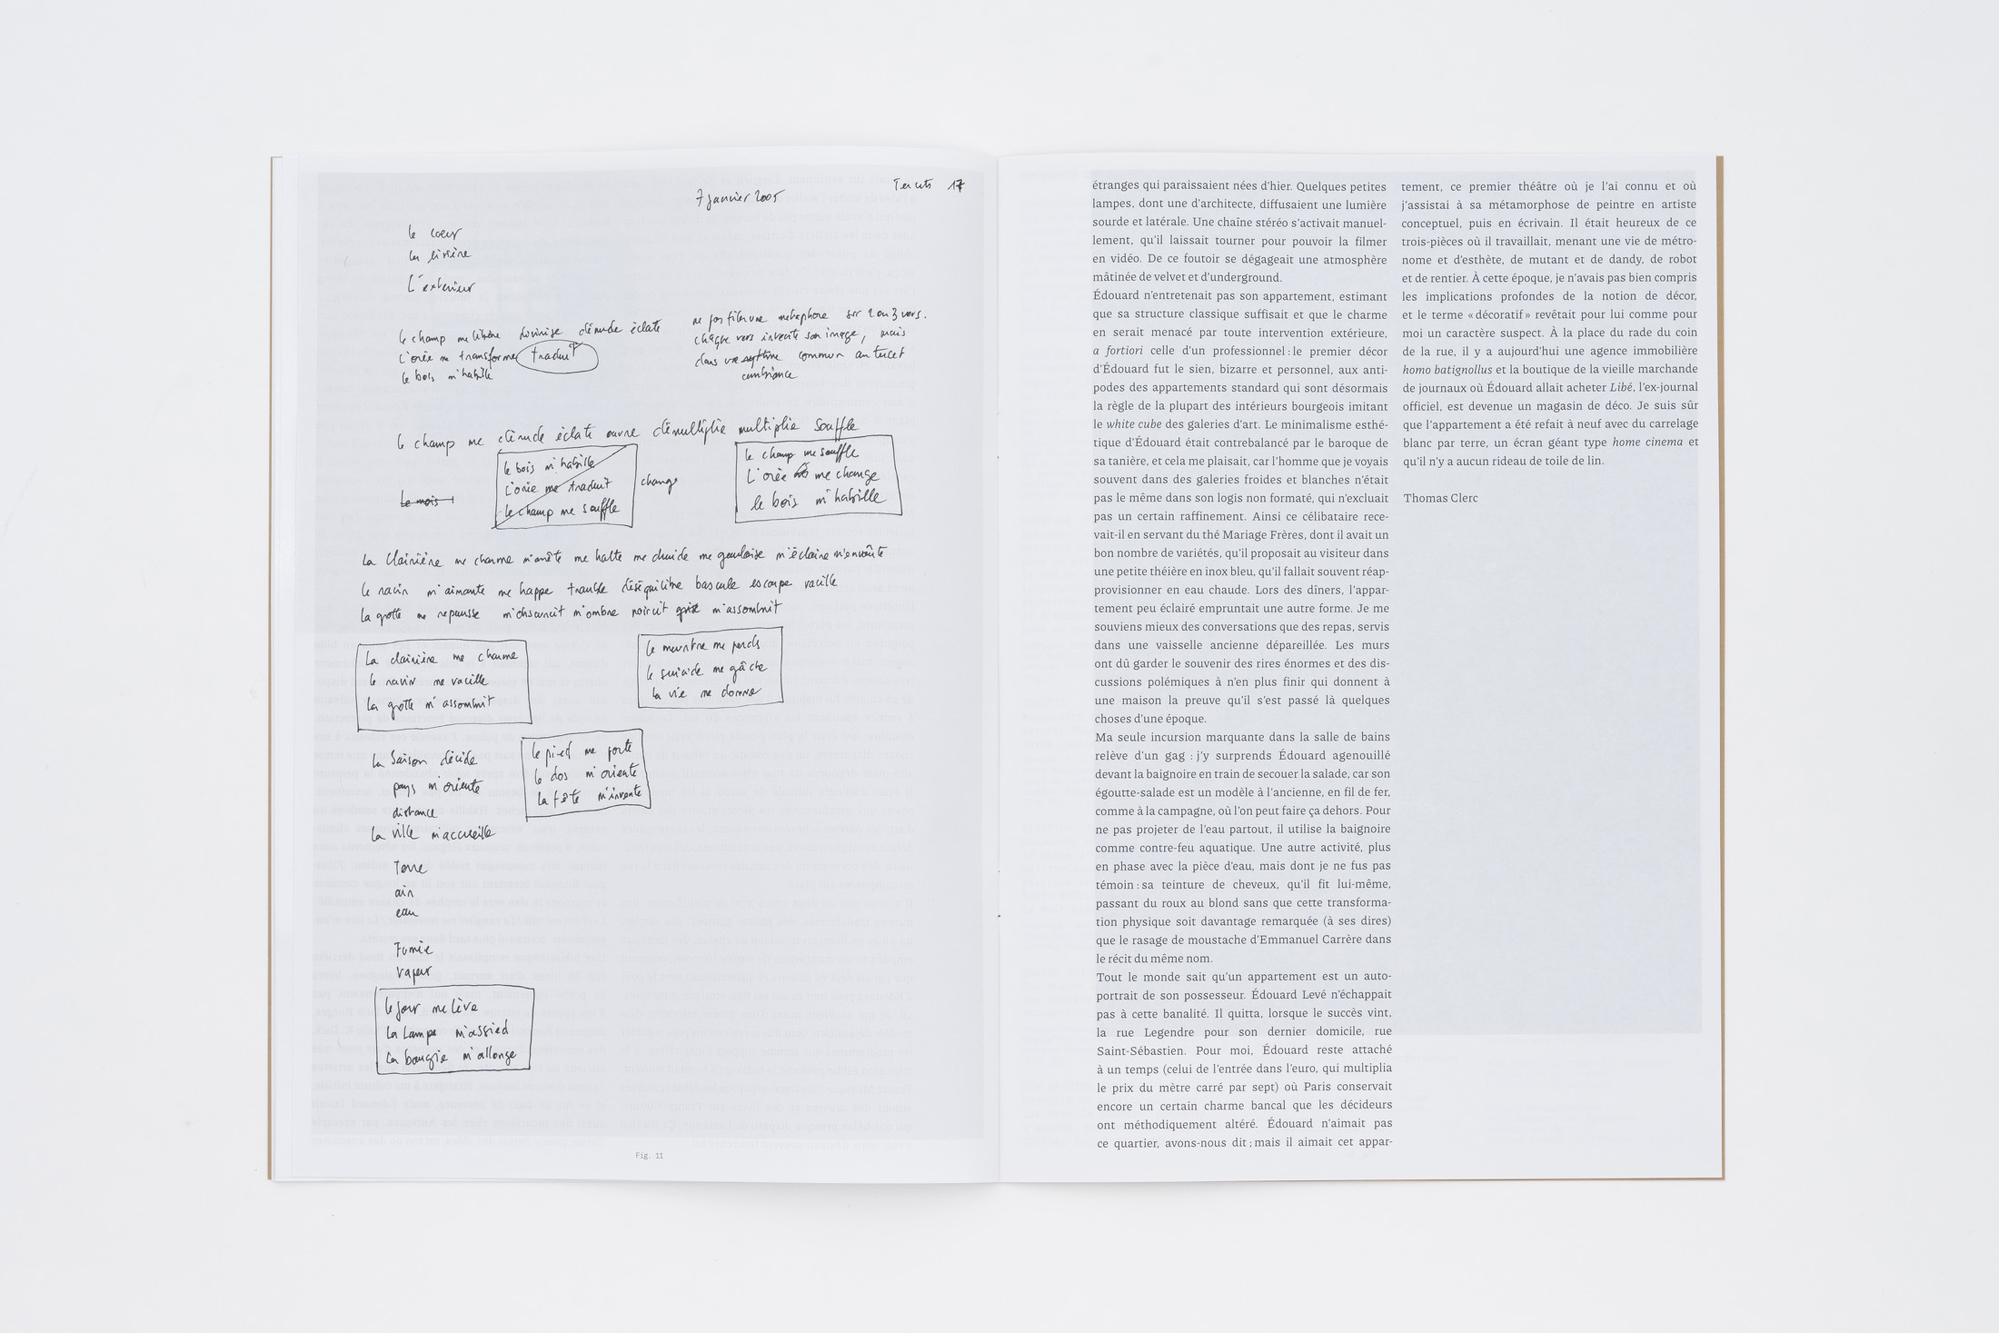 7 janvier 2005
Tercets 17
le coeur
la lisière
L'extérieur
le champ me libère divinise dénude éclate
L'orée me transforme traduit
le bois m'habille
ne pas filer une métaphore sur 2 ou 3 vers.
chaque vers invente son image, mais
dans un système commun au tercet
ambiance
le champ me dénude éclate ouvre démultiplie multiplie souffle
le bois m'habille
L'orée me traduit
le champ me souffle
change
le champ me souffle
L'orée me change
le bois m'habille
le mois
La clairière me charme m'arrête me halte me me m'éclaire m'envoûte
le ravin m'aimante me happe trouble déséquilibre bascule vacille
la grotte me repousse m'obscurcit m'ombre noircit grise m'assombrit
La clairière me charme
le ravin me vacille
La grotte m'assombrit
le meurtre me perds
le suicide me gâche
la vie me donne
La saison décide
pays m'oriente
distance
La ville m'accueille
le pied me porte
le dos m'oriente
La tête m'invente
Terre
air
eau
Fumée
vapeur
le jour me lève
La Lampe m'assied
La bougie m'allonge
Fig. 11
étranges qui paraissaient nées d'hier. Quelques petites
lampes, dont une d'architecte, diffusaient une lumière
sourde et latérale. Une chaîne stéréo s'activait manuel-
lement, qu'il laissait tourner pour pouvoir la filmer
en vidéo. De ce foutoir se dégageait une atmosphère
mâtinée de velvet et d'underground.
Édouard n'entretenait pas son appartement, estimant
que sa structure classique suffisait et que le charme
en serait menacé par toute intervention extérieure,
a fortiori celle d'un professionnel : le premier décor
d'Édouard fut le sien, bizarre et personnel, aux anti-
podes des appartements standard qui sont désormais
la règle de la plupart des intérieurs bourgeois imitant
le white cube des galeries d'art. Le minimalisme esthé-
tique d'Édouard était contrebalancé par le baroque de
sa tanière, et cela me plaisait, car l'homme que je voyais
souvent dans des galeries froides et blanches n'était
pas le même dans son logis non formaté, qui n'excluait
pas un certain raffinement. Ainsi ce célibataire rece-
vait-il en servant du thé Mariage Frères, dont il avait un
bon nombre de variétés, qu'il proposait au visiteur dans
une petite théière en inox bleu, qu'il fallait souvent réap-
provisionner en eau chaude. Lors des dîners, l'appar-
tement peu éclairé empruntait une autre forme. Je me
souviens mieux des conversations que des repas, servis
dans une vaisselle ancienne dépareillée. Les murs
ont dû garder le souvenir des rires énormes et des dis-
cussions polémiques à n'en plus finir qui donnent à
une maison la preuve qu'il s'est passé là quelques
choses d'une époque.
Ma seule incursion marquante dans la salle de bains
relève d'un gag : j'y surprends Édouard agenouillé
devant la baignoire en train de secouer la salade, car son
égoutte-salade est un modèle à l'ancienne, en fil de fer,
comme à la campagne, où l'on peut faire ça dehors. Pour
ne pas projeter de l'eau partout, il utilise la baignoire
comme contre-feu aquatique. Une autre activité, plus
en phase avec la pièce d'eau, mais dont je ne fus pas
témoin : sa teinture de cheveux, qu'il fit lui-même,
passant du roux au blond sans que cette transforma-
tion physique soit davantage remarquée (à ses dires)
que le rasage de moustache d'Emmanuel Carrère dans
le récit du même nom.
Tout le monde sait qu'un appartement est un auto-
portrait de son possesseur. Édouard Levé n'échappait
pas à cette banalité. Il quitta, lorsque le succès vint,
la rue Legendre pour son dernier domicile, rue
Saint-Sébastien. Pour moi, Édouard reste attaché
à un temps (celui de l'entrée dans l'euro, qui multiplia
le prix du mètre carré par sept) où Paris conservait
encore un certain charme bancal que les décideurs
ont méthodiquement altéré. Édouard n'aimait pas
ce quartier, avons-nous dit ; mais il aimait cet appar-
tement, ce premier théâtre où je l'ai connu et où
j'assistai à sa métamorphose de peintre en artiste
conceptuel, puis en écrivain. Il était heureux de ce
trois-pièces où il travaillait, menant une vie de métro-
nome et d'esthète, de mutant et de dandy, de robot
et de rentier. À cette époque, je n'avais pas bien compris
les implications profondes de la notion de décor,
et le terme « décoratif » revêtait pour lui comme pour
moi un caractère suspect. À la place du rade du coin
de la rue, il y a aujourd'hui une agence immobilière
homo batignollus et la boutique de la vieille marchande
de journaux où Édouard allait acheter Libé, l'ex-journal
officiel, est devenue un magasin de déco. Je suis sûr
que l'appartement a été refait à neuf avec du carrelage
blanc par terre, un écran géant type home cinema et
qu'il n'y a aucun rideau de toile de lin.
Thomas Clerc